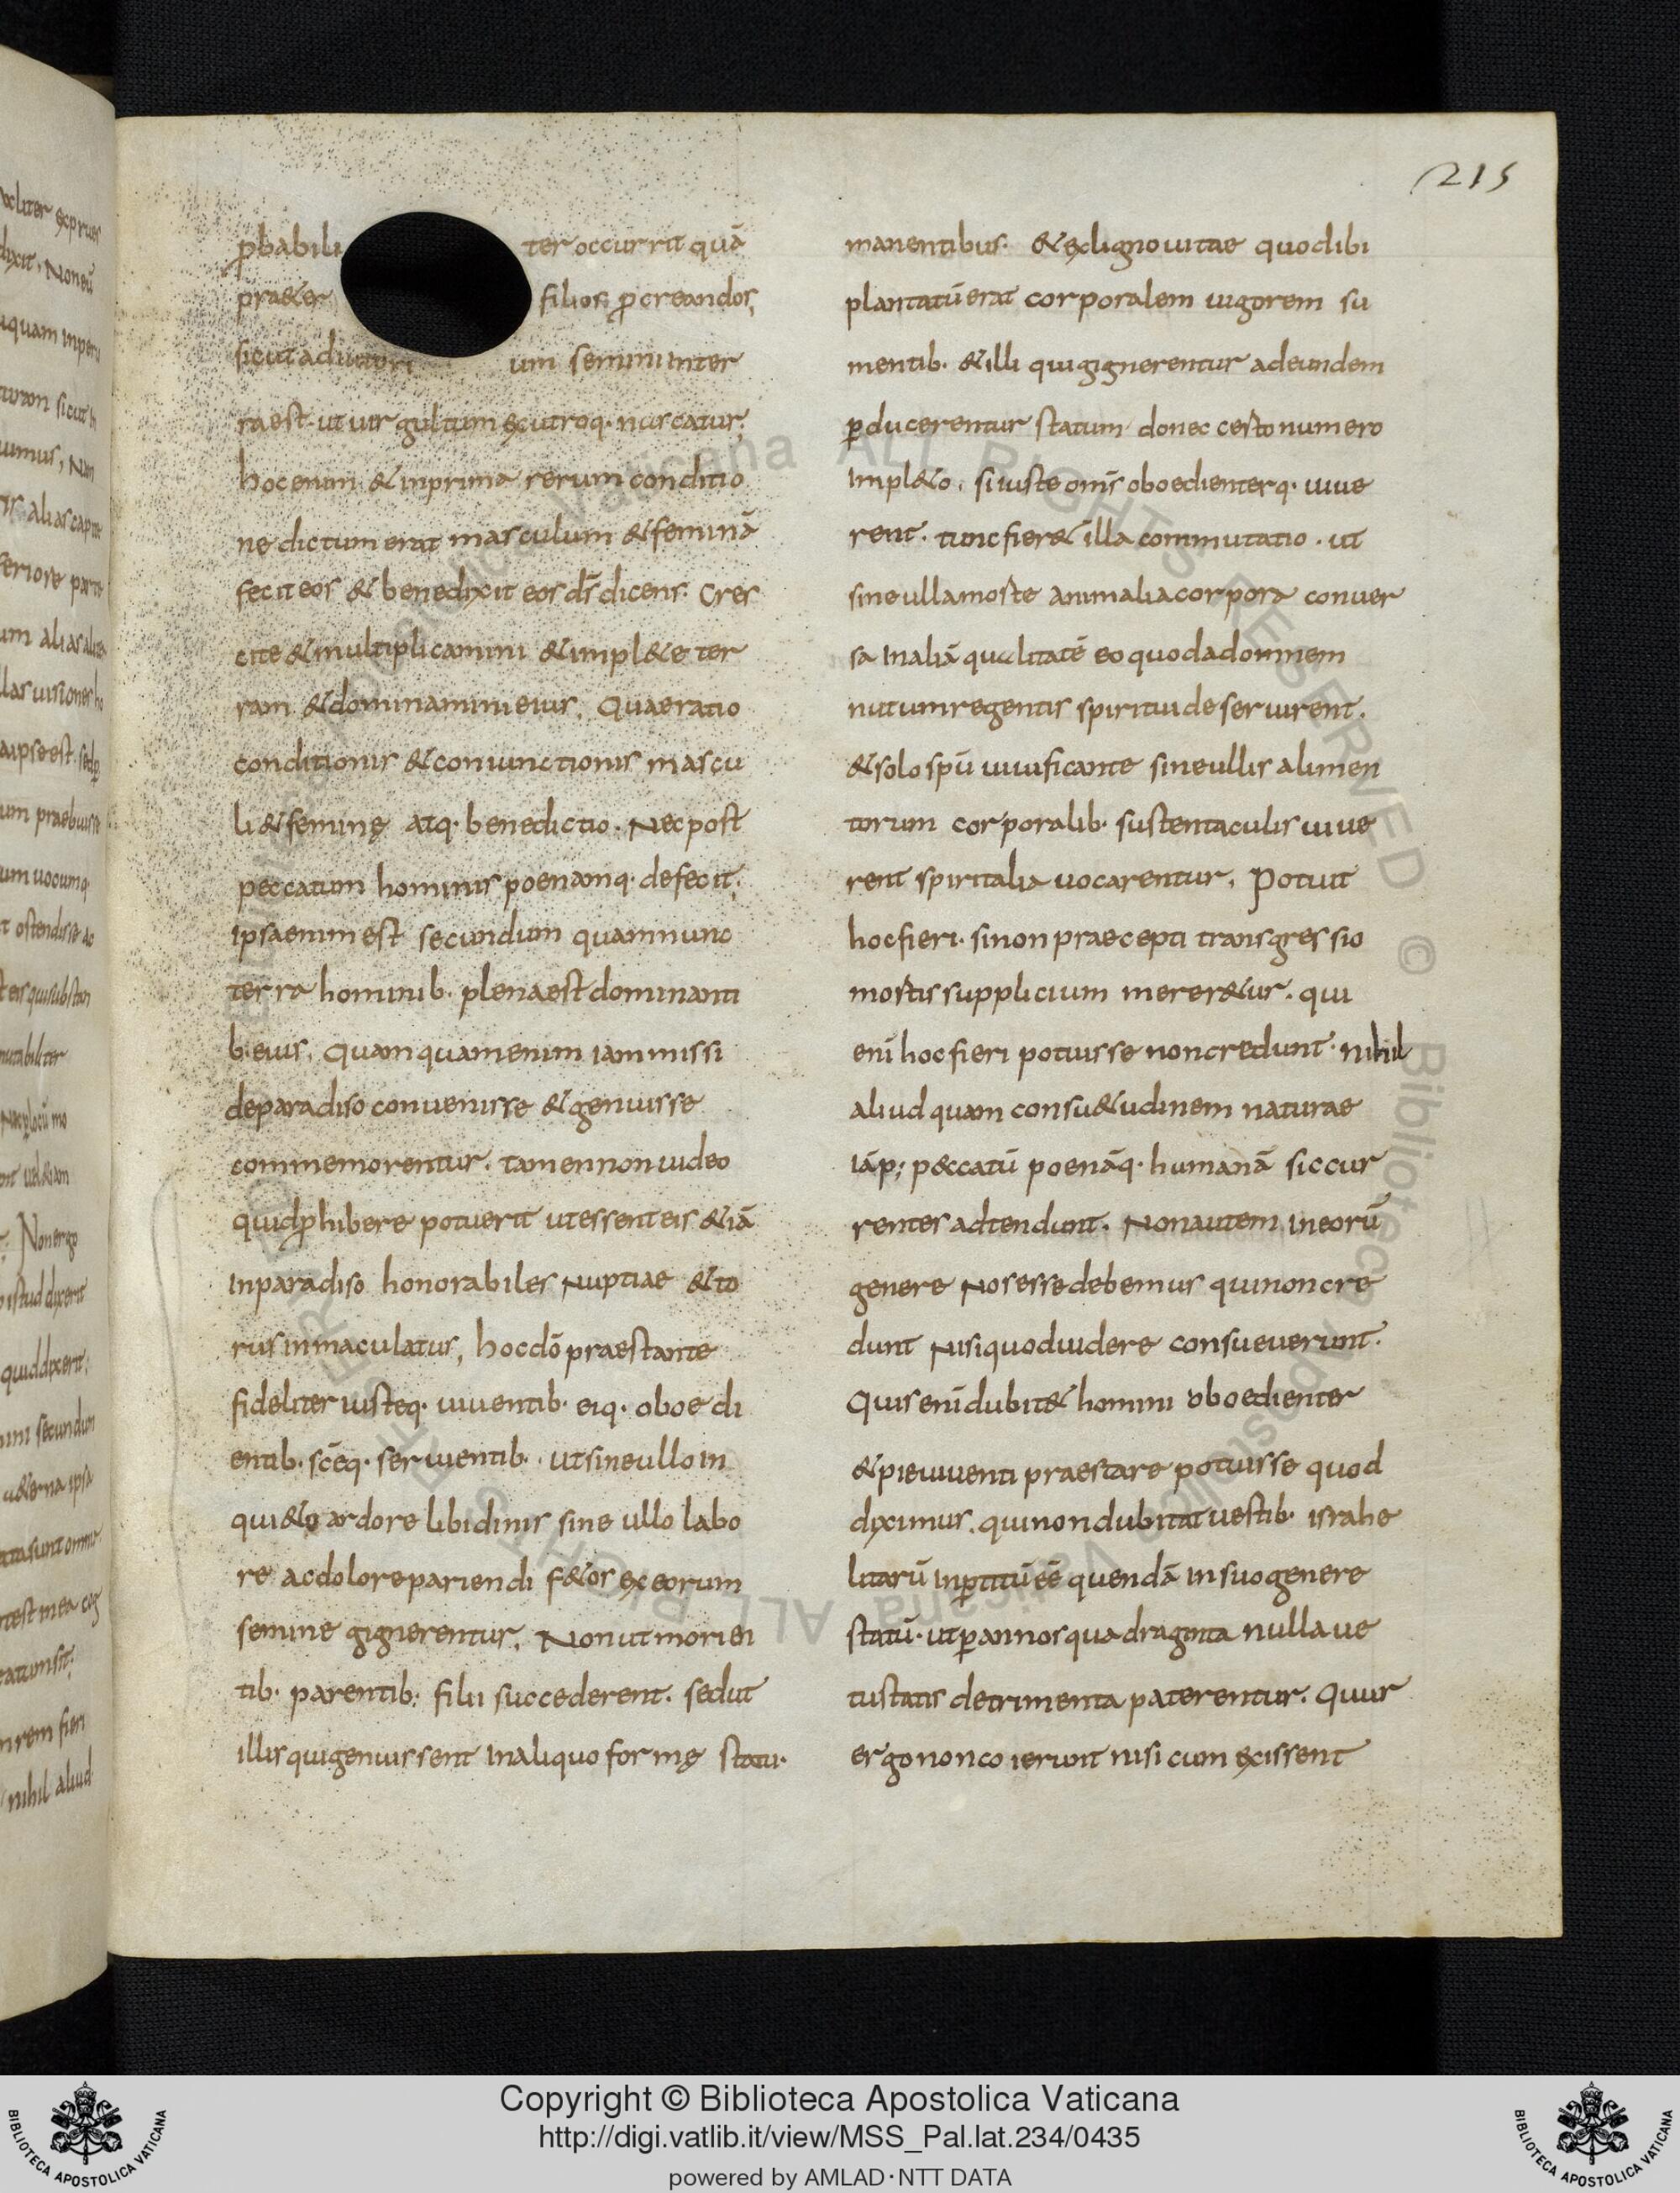 215
ꝓbabiliter occurrit quā
praet&er filios ꝓcreandos,
sicut adiutorium semini inter
ra est. ut uirgultum ex utroq· nascatur;
hoc enim & in prima rerum conditio
ne dictum erat masculum & feminā
fecit eos & benedixit eos dr̄ dicens. Cres
cite & multiplicamini & impl&e ter
ram & dominamini eius. Quae ratio
conditionis & coniunctionis mascu
li & feminę atq· benedictio. Nec post
peccatum hominis poenamq· defecit;
Ipsa enim est secundum quam nunc
terra hominib· plena est dominanti
b· eius. Quamquam enim iam missi
de paradiso convenisse & genuisse
commemorentur. tamen non uideo
quid ꝓhibere potuerit ut essent eis &iā
in paradiso honorabiles Nuptiae & to
rus inmaculatus, hoc dō praestante
fideliter iusteq· uiuentib· eiq· oboedi
entib· scēq· seruientib·. ut sine ullo in
qui&o ardore libidinis sine ullo labo
re ac dolore pariendi f&os ex eorum
semine gignerentur. Non ut morien
tib· parentib; filii succederent. sed ut
illis qui genuissent in aliquo formę statu·
manentibus. & ex ligno uitae quod ibi
plantatū erat corporalem uigorem su
mentib· & illi qui gignerentur ad eundem
ꝑducerentur statum donec certo numero
Impl&o. si iuste om̄s oboedienterq· uiue
rent. tunc fier& illa commutatio. ut
sine ulla morte animalia corpora conuer
sa In aliā qualitatē eo quod ad omnem
nutum regentis spiritui deseruirent.
& solo spū uiuificante sine ullis alimen
torum corporalib· sustentaculis uiue
rent spiritalia uocarentur. Potuit
hoc fieri. si non praecepti transgressio
mortis supplicium merer&ur. qui
enī hoc fieri potuisse non credunt. nihil
aliud quam consu&udinem naturae
Iā p; peccatū poenāq· humanā sic cur
rentes adtendunt. Non autem in eorū
genere Nos esse debemus qui non cre
dunt Nisi quod uidere consueuerunt.
Quis enī dubit& homini oboedienter
& pie uiuenti praestare potuisse quod
diximus. qui non dubitat uestib· israhe
litarū Inꝑtitū eē quendā In suo genere
statū· ut ꝑ annos quadraginta nulla ue
tustatis detrimenta paterentur. Quur
ergo non coierunt nisi cum exissent
Copyright © Biblioteca Apostolica Vaticana
http://digi.vatlib.it/view/MSS_Pal.lat.234/0435
powered by AMLAD·NTT DATA
BIBLIOTECA APOSTOLICA VATICANA
BIBLIOTECA APOSTOLICA VATICANA